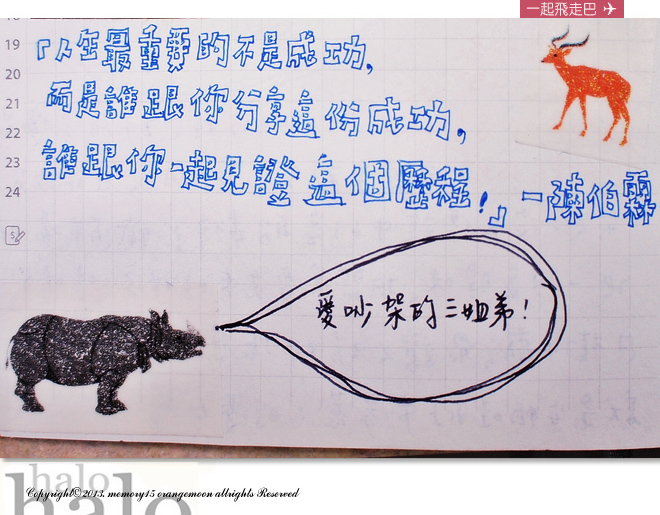 一起飛走巴 ✈
19
20
21
22
23
24
『人生最重要的不是成功,
而是誰跟你分享這份成功,
誰跟你一起見證這個歷程!』—陳伯霖
5
愛吵架的三姐弟!
halo
halo
Copyright© 2013. memory15 orangemoon allrights Reserved